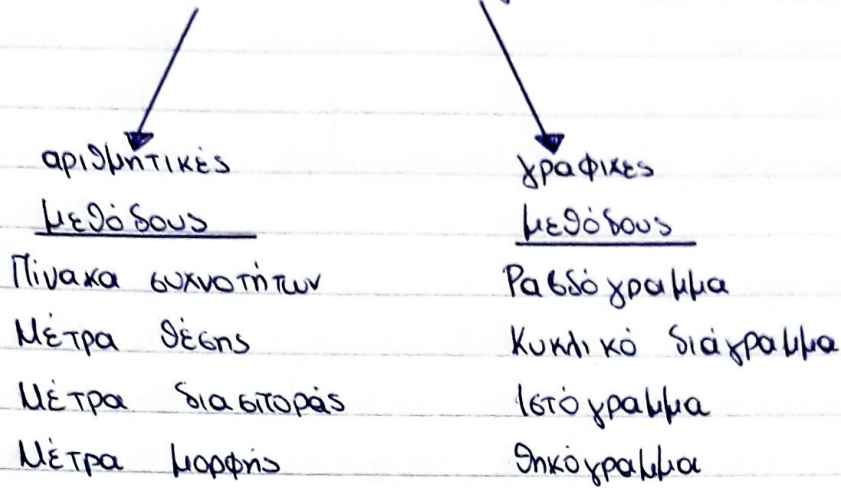 αριθμητικές
μεθόδους
Πίνακα συχνοτήτων
Μέτρα θέσης
Μέτρα διασποράς
Μέτρα μορφής
γραφικες
μεθόδους
Ραβδόγραμμα
Κυκλικό διάγραμμα
Ιστόγραμμα
Θηκόγραμμα